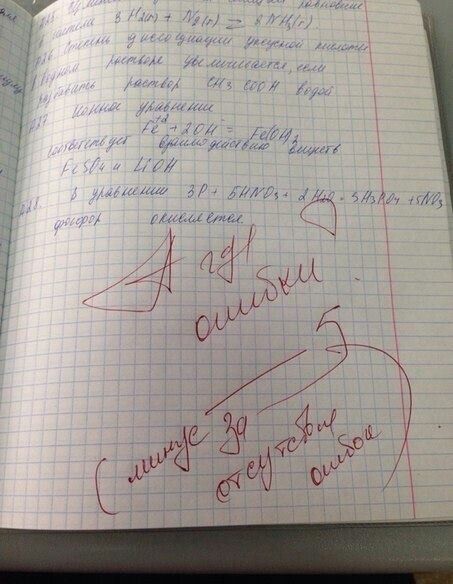 равновесие
3H₂(г) + N₂(г) = 2NH₃(г)
А26 Степень диссоциации уксусной кислоты
в водном растворе увеличивается, если
разбавить раствор CH3 COOH водой
А27 Ионное уравнение
Fe⁺² + 2OH⁻ = Fe(OH)₂
соответствует взаимодействию веществ
FeSO₄ и LiOH
А28. В уравнении 3P + 5HNO₃ + 2H₂O = 3H₃PO₄ + 5NO
фосфор окисляется
А где
ошибки
5
(минус за
отсутствие
ошибок